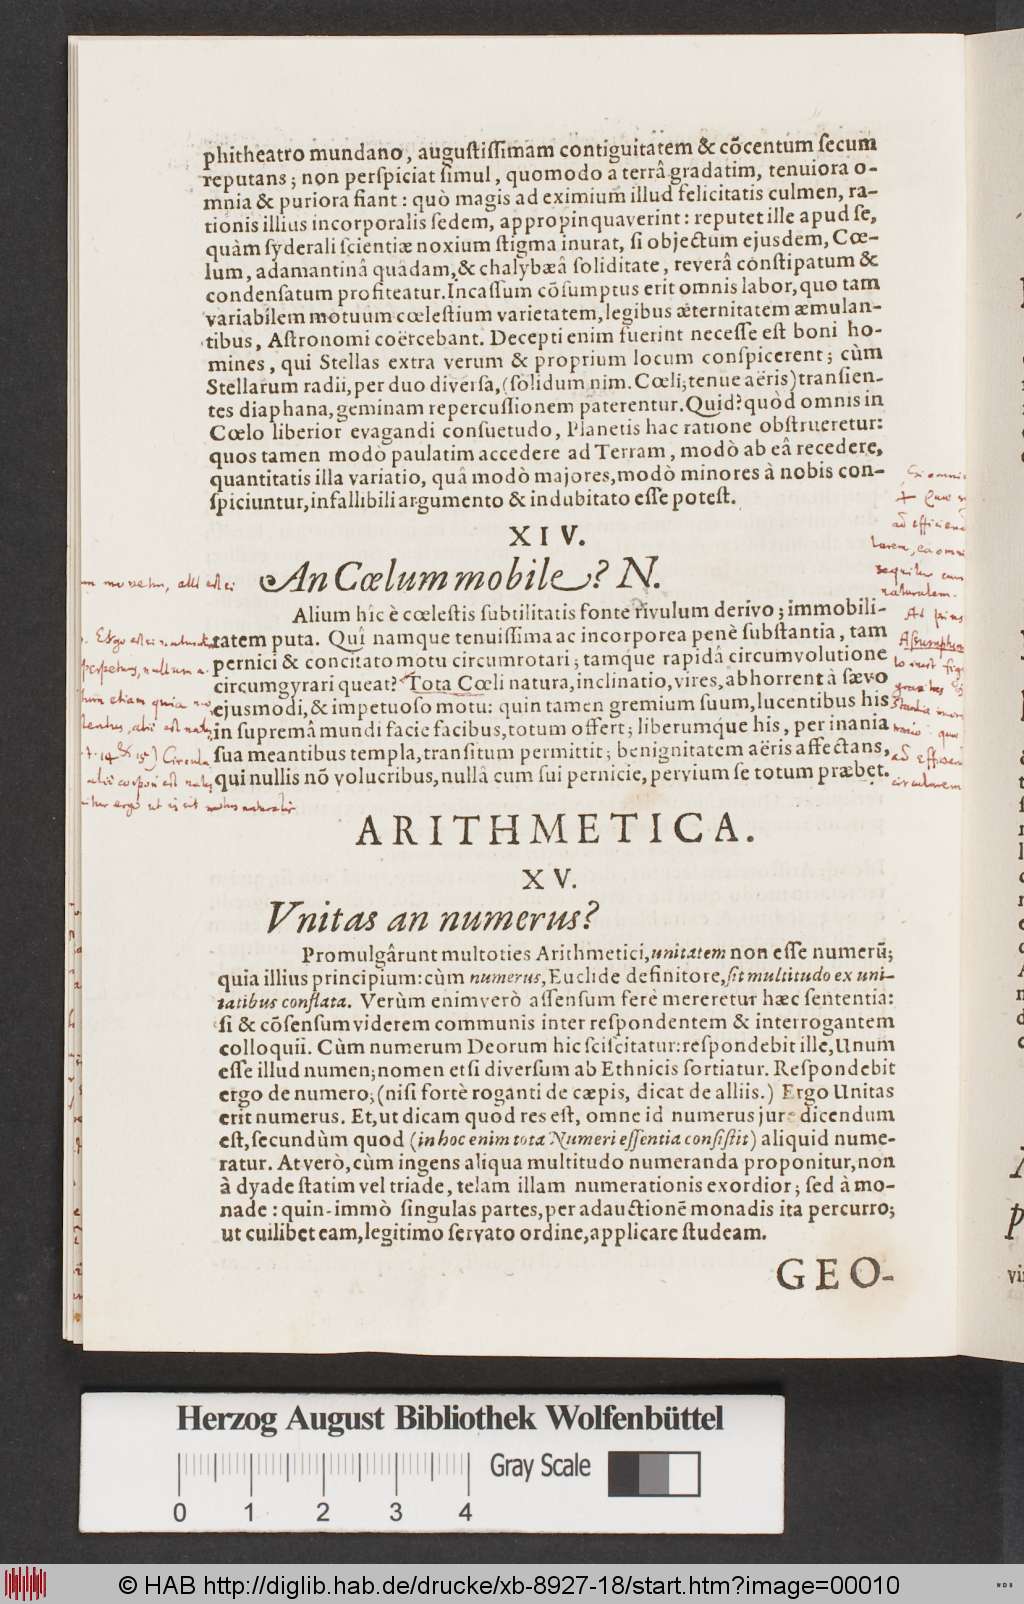 phitheatro mundano, augustissimam contiguitatem & cõcentum secum
reputans; non perspiciat simul, quomodo a terrâ gradatim, tenuiora o-
mnia & puriora fiant: quò magis ad eximium illud felicitatis culmen, ra-
tionis illius incorporalis sedem, appropinquaverint: reputet ille apud se,
quàm syderali scientiæ noxium stigma inurat, si objectum ejusdem, Cœ-
lum, adamantinâ quâdam, & chalybæâ soliditate, reverâ constipatum &
condensatum profiteatur. Incassum cõsumptus erit omnis labor, quo tam
variabilem motuum cœlestium varietatem, legibus æternitatem æmulan-
tibus, Astronomi coërcebant. Decepti enim fuerint necesse est boni ho-
mines, qui Stellas extra verum & proprium locum conspicerent; cùm
Stellarum radii, per duo diversa, (solidum nim. Cœli; tenue aëris) transien-
tes diaphana, geminam repercussionem paterentur. Quid? quòd omnis in
Cœlo liberior evagandi consuetudo, Planetis hac ratione obstrueretur:
quos tamen modò paulatim accedere ad Terram, modò ab eâ recedere,
quantitatis illa variatio, quâ modò majores, modò minores à nobis con-
spiciuntur, infallibili argumento & indubitato esse potest.
XIV.
An Cœlum mobile? N.
Alium hîc è cœlestis subtilitatis fonte rivulum derivo; immobili-
tatem puta. Quî namque tenuissima ac incorporea penè substantia, tam
pernici & concitato motu circumrotari; tamque rapidâ circumvolutione
circumgyrari queat? Tota Cœli natura, inclinatio, vires, abhorrent à sævo
ejusmodi, & impetuoso motu: quin tamen gremium suum, lucentibus his
in supremâ mundi facie facibus, totum offert; liberumque his, per inania
sua meantibus templa, transitum permittit; benignitatem aëris affectans,
qui nullis nõ volucribus, nullâ cum sui pernicie, pervium se totum præbet.
ARITHMETICA.
XV.
Vnitas an numerus?
Promulgârunt multoties Arithmetici, unitatem non esse numerũ;
quia illius principium: cùm numerus, Euclide definitore, sit multitudo ex uni-
tatibus conflata. Verùm enimverò assensum ferè mereretur hæc sententia:
si & cõsensum viderem communis inter respondentem & interrogantem
colloquii. Cùm numerum Deorum hic sciscitatur: respondebit ille, Unum
esse illud numen; nomen etsi diversum ab Ethnicis sortiatur. Respondebit
ergo de numero; (nisi fortè roganti de cæpis, dicat de alliis.) Ergo Unitas
erit numerus. Et, ut dicam quod res est, omne id numerus jure dicendum
est, secundùm quod (in hoc enim tota Numeri essentia consistit) aliquid nume-
ratur. At verò, cùm ingens aliqua multitudo numeranda proponitur, non
à dyade statim vel triade, telam illam numerationis exordior; sed à mo-
nade: quin-immò singulas partes, per adauctionẽ monadis ita percurro;
ut cuilibet eam, legitimo servato ordine, applicare studeam.
GEO-
Herzog August Bibliothek Wolfenbüttel
Gray Scale
0 1 2 3 4
© HAB http://diglib.hab.de/drucke/xb-8927-18/start.htm?image=00010